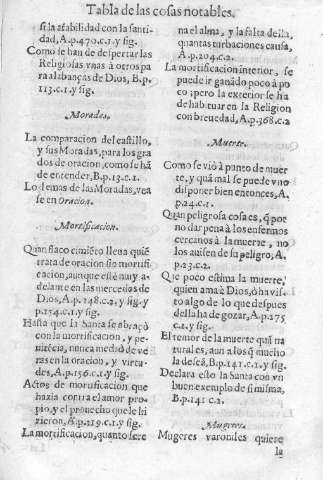 Tabla de las cosas notables.
si la afabilidad con la santi-
dad, A.p.470.c.1.y sig.
Como se han de despertar las
Religiosas vnas à otros pa
ra alabanças de Dios, B.p.
113.c.1.y sig.
Moradas.
La comparacion del castillo,
y sus Moradas, para los gra
dos de oracion, como se hà
de entender, B.p.13.c.1.
Lo demas de las Moradas, vea
se en Oracion.
Mortificacion.
Quan flaco cimiẽto lleua quiẽ
trata de oracion sin mortifi-
cacion, aunque estè muy a-
delante en las mercedes de
Dios, A.p.148.c.2. y sig. y
p.154.c.1.y sig.
Hasta que la Santa se abraçò
con la mortificacion, y pe-
nitẽcia, nunca medrò de ve
ras en la oracion, y virtu-
des, A.p.156.c.1.y sig.
Actos de mortificacion que
hazia contra el amor pro-
pio, y el prouecho que le hi
zieron, A.p.219.c.1.y sig.
La mortificacion, quanto sere
na el alma, y la falta della,
quantas turbaciones causa,
A.p.204.c.2.
La mortificacion interior, se
puede ir ganãdo poco à po
co; pero la exterior se ha
de habituar en la Religion
con breuedad, A.p.368.c.2
Muerte.
Como se viò à punto de muer
te, y quã mal se puede vno
disponer bien entonces, A.
p.24.c.1.
Quan peligrosa cosa es, q̃ por
no dar pena à los enfermos
cercanos à la muerte, no
los auisen de su peligro, A.
p.23.c.2.
Que poco estima la muerte,
quien ama à Dios, ò ha vis-
to algo de lo que despues
della ha de gozar, A.p.275
c.1.y sig.
El temor de la muerte quã na
tural es, aun a los q̃ mucho
la desean, B.p.141.c.1.y sig.
Declara esto la Santa con vn
buen exemplo de si misma,
B.p.141 c.2.
Mugeres.
Mugeres varoniles quiere
la